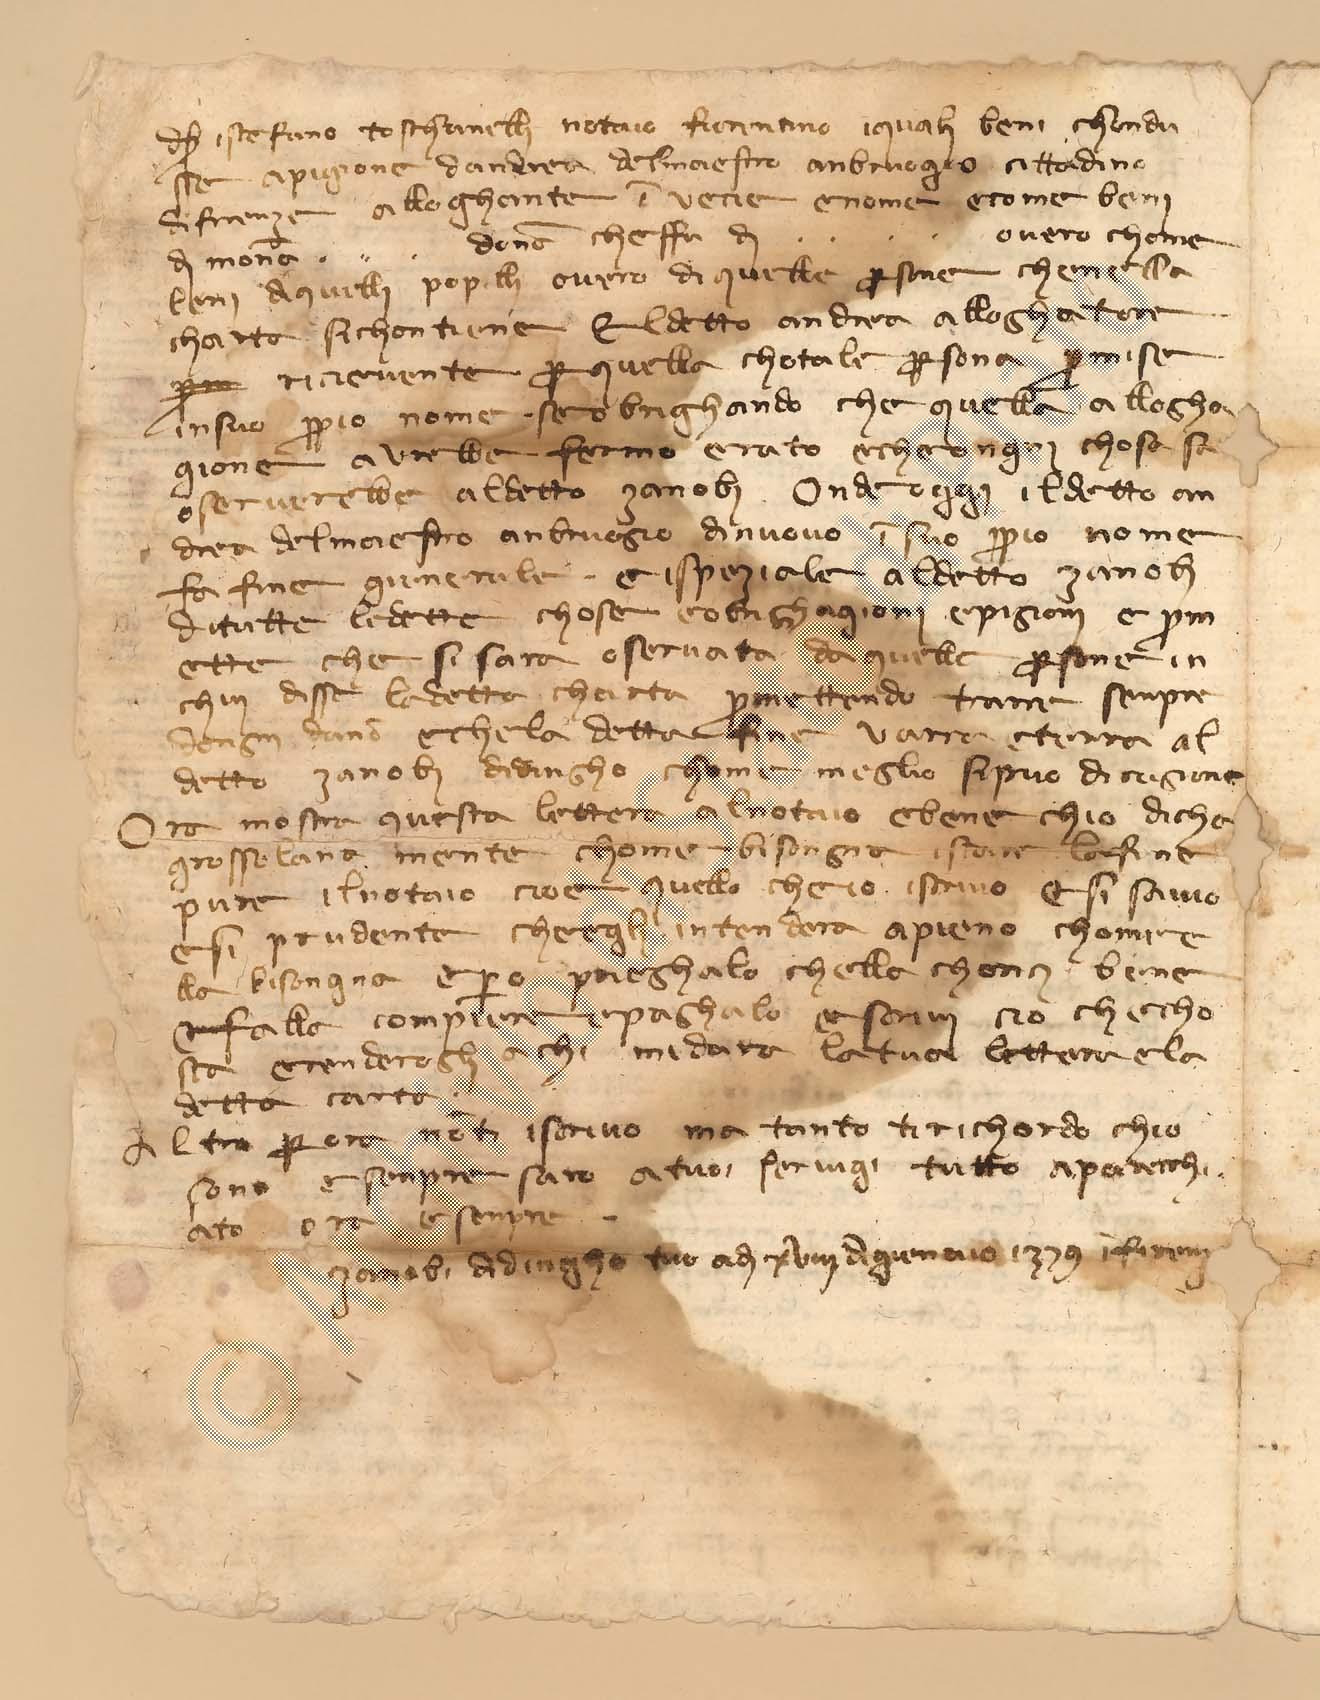 di istefano toschanelli notaio fiorentino i quali beni chondu
sse a pigione d andrea del maestro anbruogio cittadino
di firenze alloghante ī vecie e nome e come beni
di monā . . . donō che ffu di . . . . overo chome
beni di quelli popilli overo di quelle persone che nella
charta si chontiene E l detto andrea alloghatore
ricievente per quella chotale persona promise
in suo propio nome se obrighando che quella allogha
gione avrebbe fermo e rato e che rongni chosa sa
oserverebbe al detto zanobi Onde oggi il detto an
drea del maestro anbruogio di nuovo ī suo propio nome
fa fine gienerale e ispeziale al detto zanobi
di tutte le dette chose e obrighagioni e pigioni e prom
ette che si sara oservata da quelle persone in
chui disse la detta charta promettendo trarre senpre
d ongni danō e che la detta fine varra e terra al
detto zanobi didingho chome meglio si puo di ragione
Ora mostra questa lettera al notaio e bene ch io dicha
grossolana mente chome bisongna istare la fine
pure il notaio cioe quello che io iscrivo e si savio
e si prudente che egli intendera apieno chom e e
lla bisongna e pero prieghalo che lla chonci bene
falla compiere e paghalo e scrivi cio che ccho
sta e renderogli a chi mi dara la tua lettera e la
detta carta
Altro per ora nōti iscrivo ma tanto ti richordo ch io
sono e senpre saro a tuoi servigi tutto aparecchi
ato ora e senpre
zanobi didingho tuo a di xviii di giennaio 1379 ī firenze
© ARCHIVIO DI STATO DI PRATO